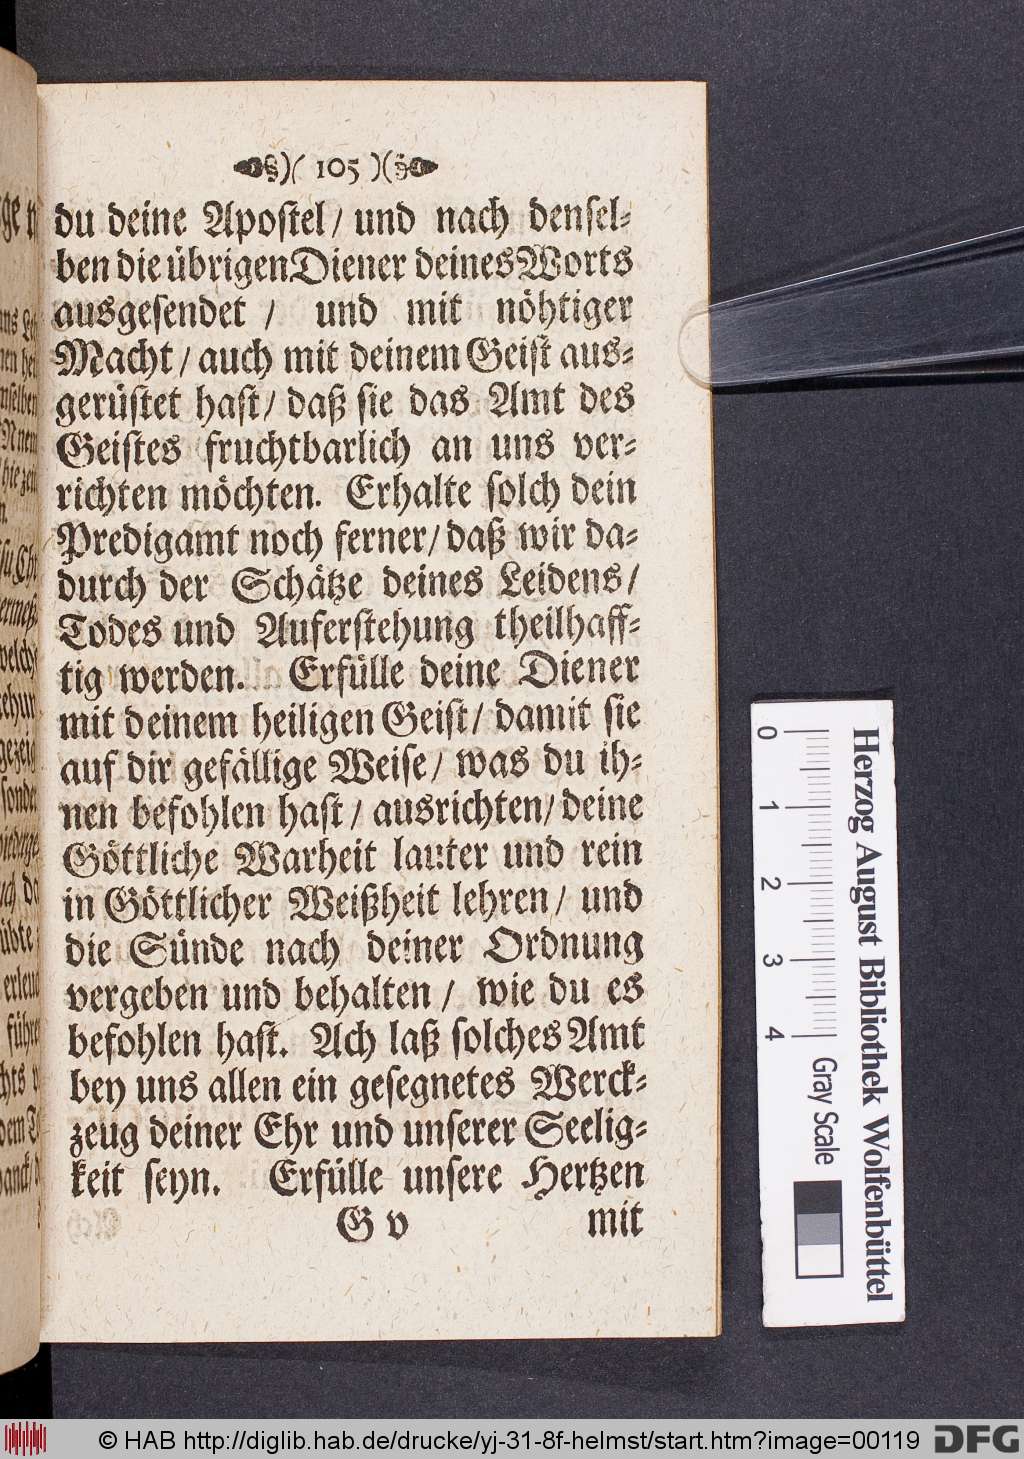 )( 105 )(
du deine Apoſtel / und nach denſel-
ben die übrigen Diener deines Worts
ausgeſendet / und mit nöhtiger
Macht / auch mit deinem Geiſt aus-
gerüſtet haſt / daß ſie das Amt des
Geiſtes fruchtbarlich an uns ver-
richten möchten. Erhalte ſolch dein
Predigamt noch ferner / daß wir da-
durch der Schätze deines Leidens /
Todes und Auferſtehung theilhaff-
tig werden. Erfülle deine Diener
mit deinem heiligen Geiſt / damit ſie
auf dir gefällige Weiſe / was du ih-
nen befohlen haſt / ausrichten / deine
Göttliche Warheit lauter und rein
in Göttlicher Weißheit lehren / und
die Sünde nach deiner Ordnung
vergeben und behalten / wie du es
befohlen haſt. Ach laß ſolches Amt
bey uns allen ein geſegnetes Werck-
zeug deiner Ehr und unſerer Seelig-
keit ſeyn. Erfülle unſere Hertzen
G v mit
Herzog August Bibliothek Wolfenbüttel
0 1 2 3 4 Gray Scale
© HAB http://diglib.hab.de/drucke/yj-31-8f-helmst/start.htm?image=00119 DFG